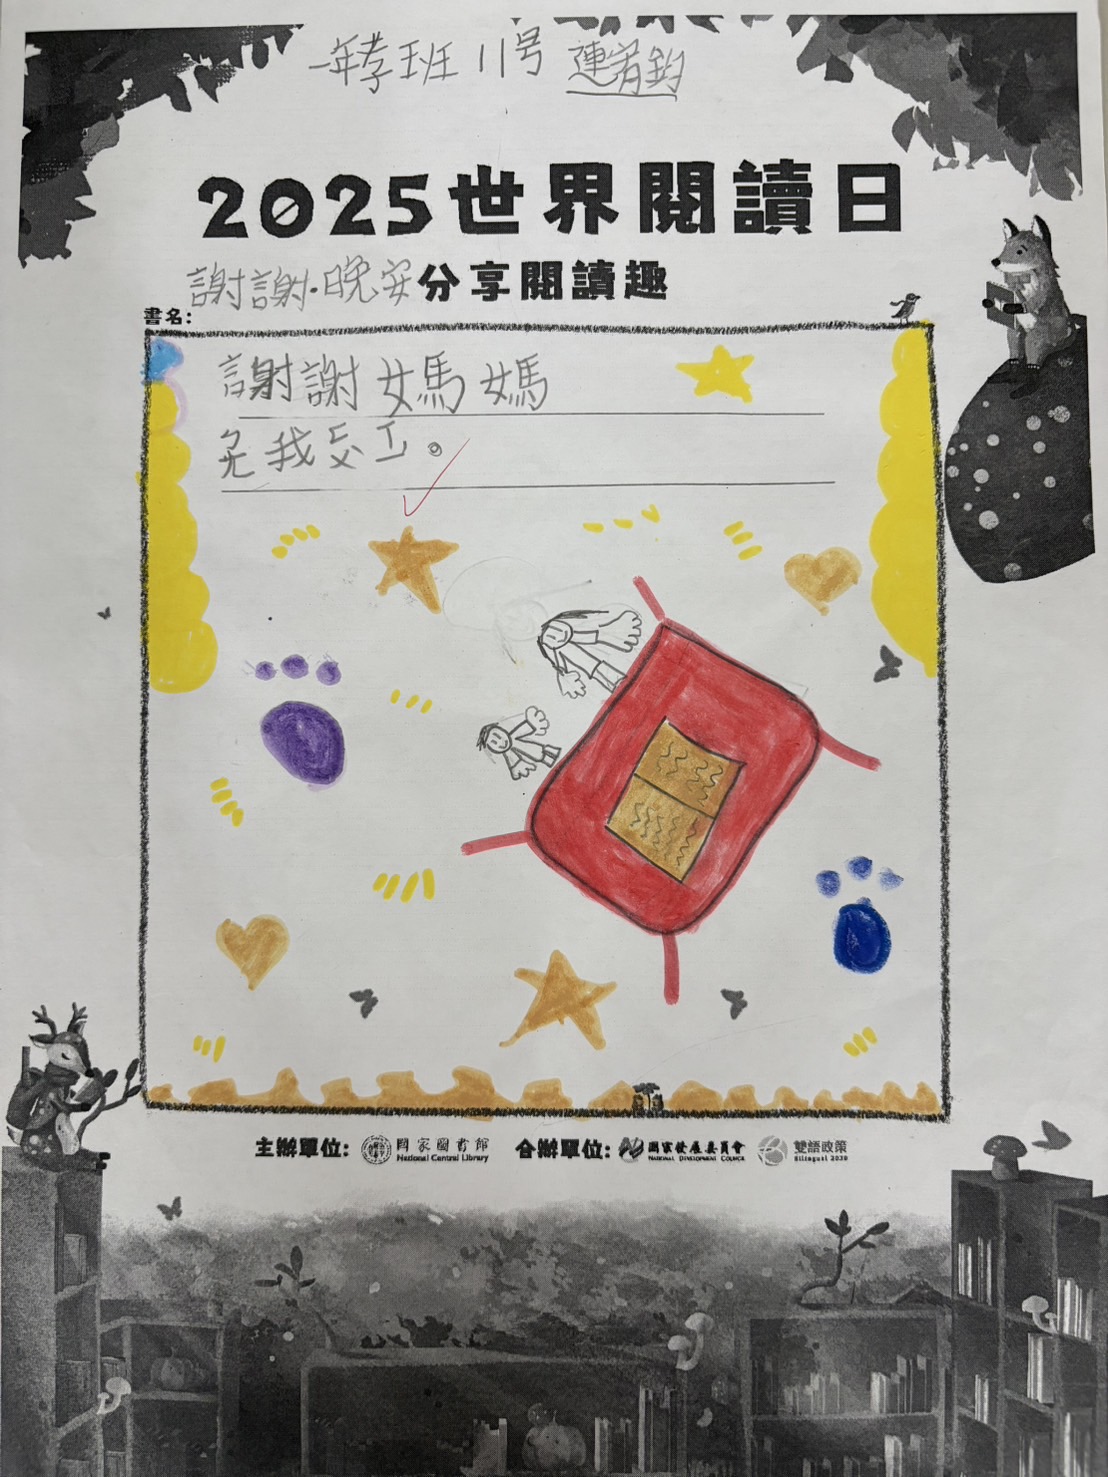 一年孝班 11号 連宥鈞
2025世界閱讀日
謝謝·晚安分享閱讀趣
書名:
謝謝媽媽
免我交工。
主辦單位: 國家圖書館 National Central Library 合辦單位: 國家發展委員會 National Development Council 雙語政策 Bilingual 2030